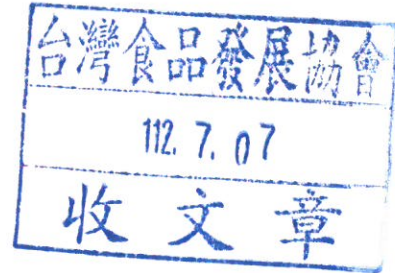 台灣食品發展協會
112. 7. 07
收文章